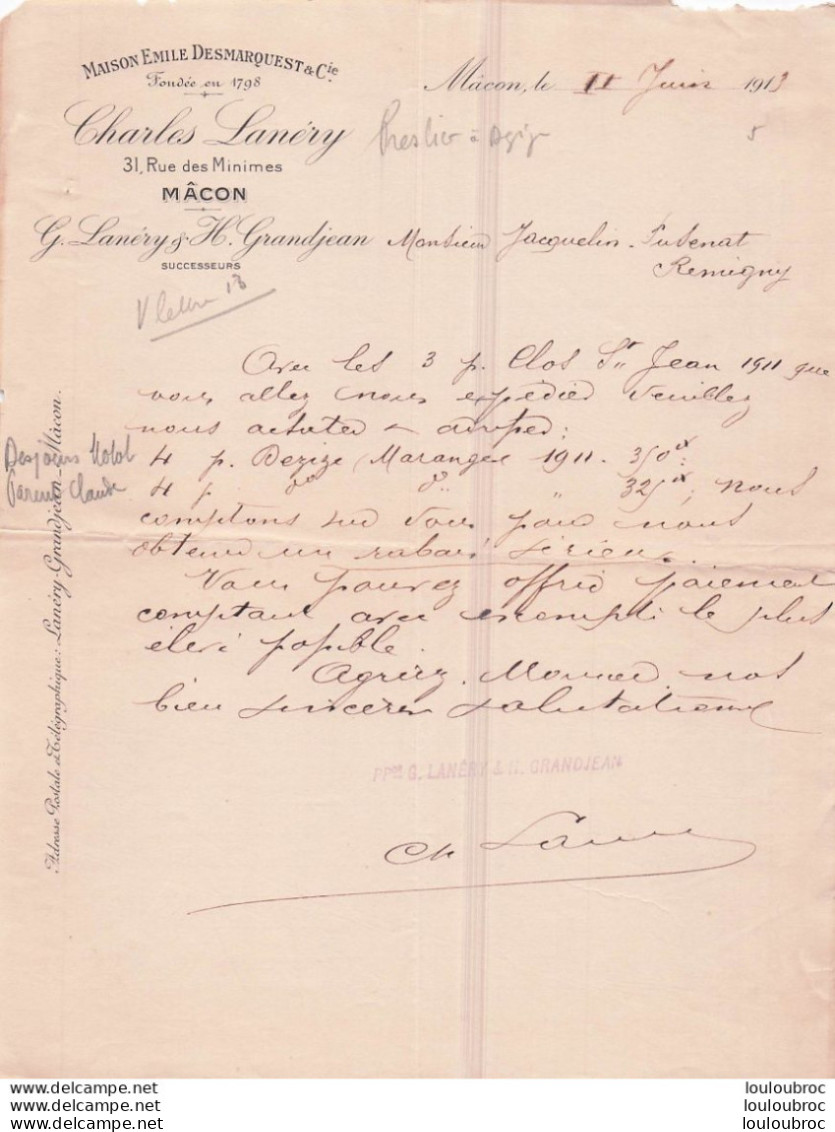 MAISON EMILE DESMARQUEST & Cie
Fondée en 1798
Charles Lanéry
31, Rue des Minimes
MÂCON
G. Lanéry & H. Grandjean
SUCCESSEURS
Mâcon, le 11 Juin 1913
5
Monsieur Jacquelin-
Remigny
V lettre 13
Avec les 3 p. Clos St Jean 1911 que
vous allez nous expédier veuillez
nous acheter
4 p. Dezize Marangee 1911. 350
4 p. do do " 325 ; nous
comptons sur vous pour nous
obtenir un rabais sérieux.
Vous pouvez offrir paiement
comptant avec escompte le plus
élevé possible.
Agréez, Monsieur nos
bien sincères salutations
PPon G. LANÉRY & H. GRANDJEAN
Ch Lanéry
Claude
Adresse Postale & Télégraphique: Lanéry-Grandjean-Mâcon.
delcampe.net
delcampe.net
delcampe.net
louloubroc
louloubroc
louloubroc